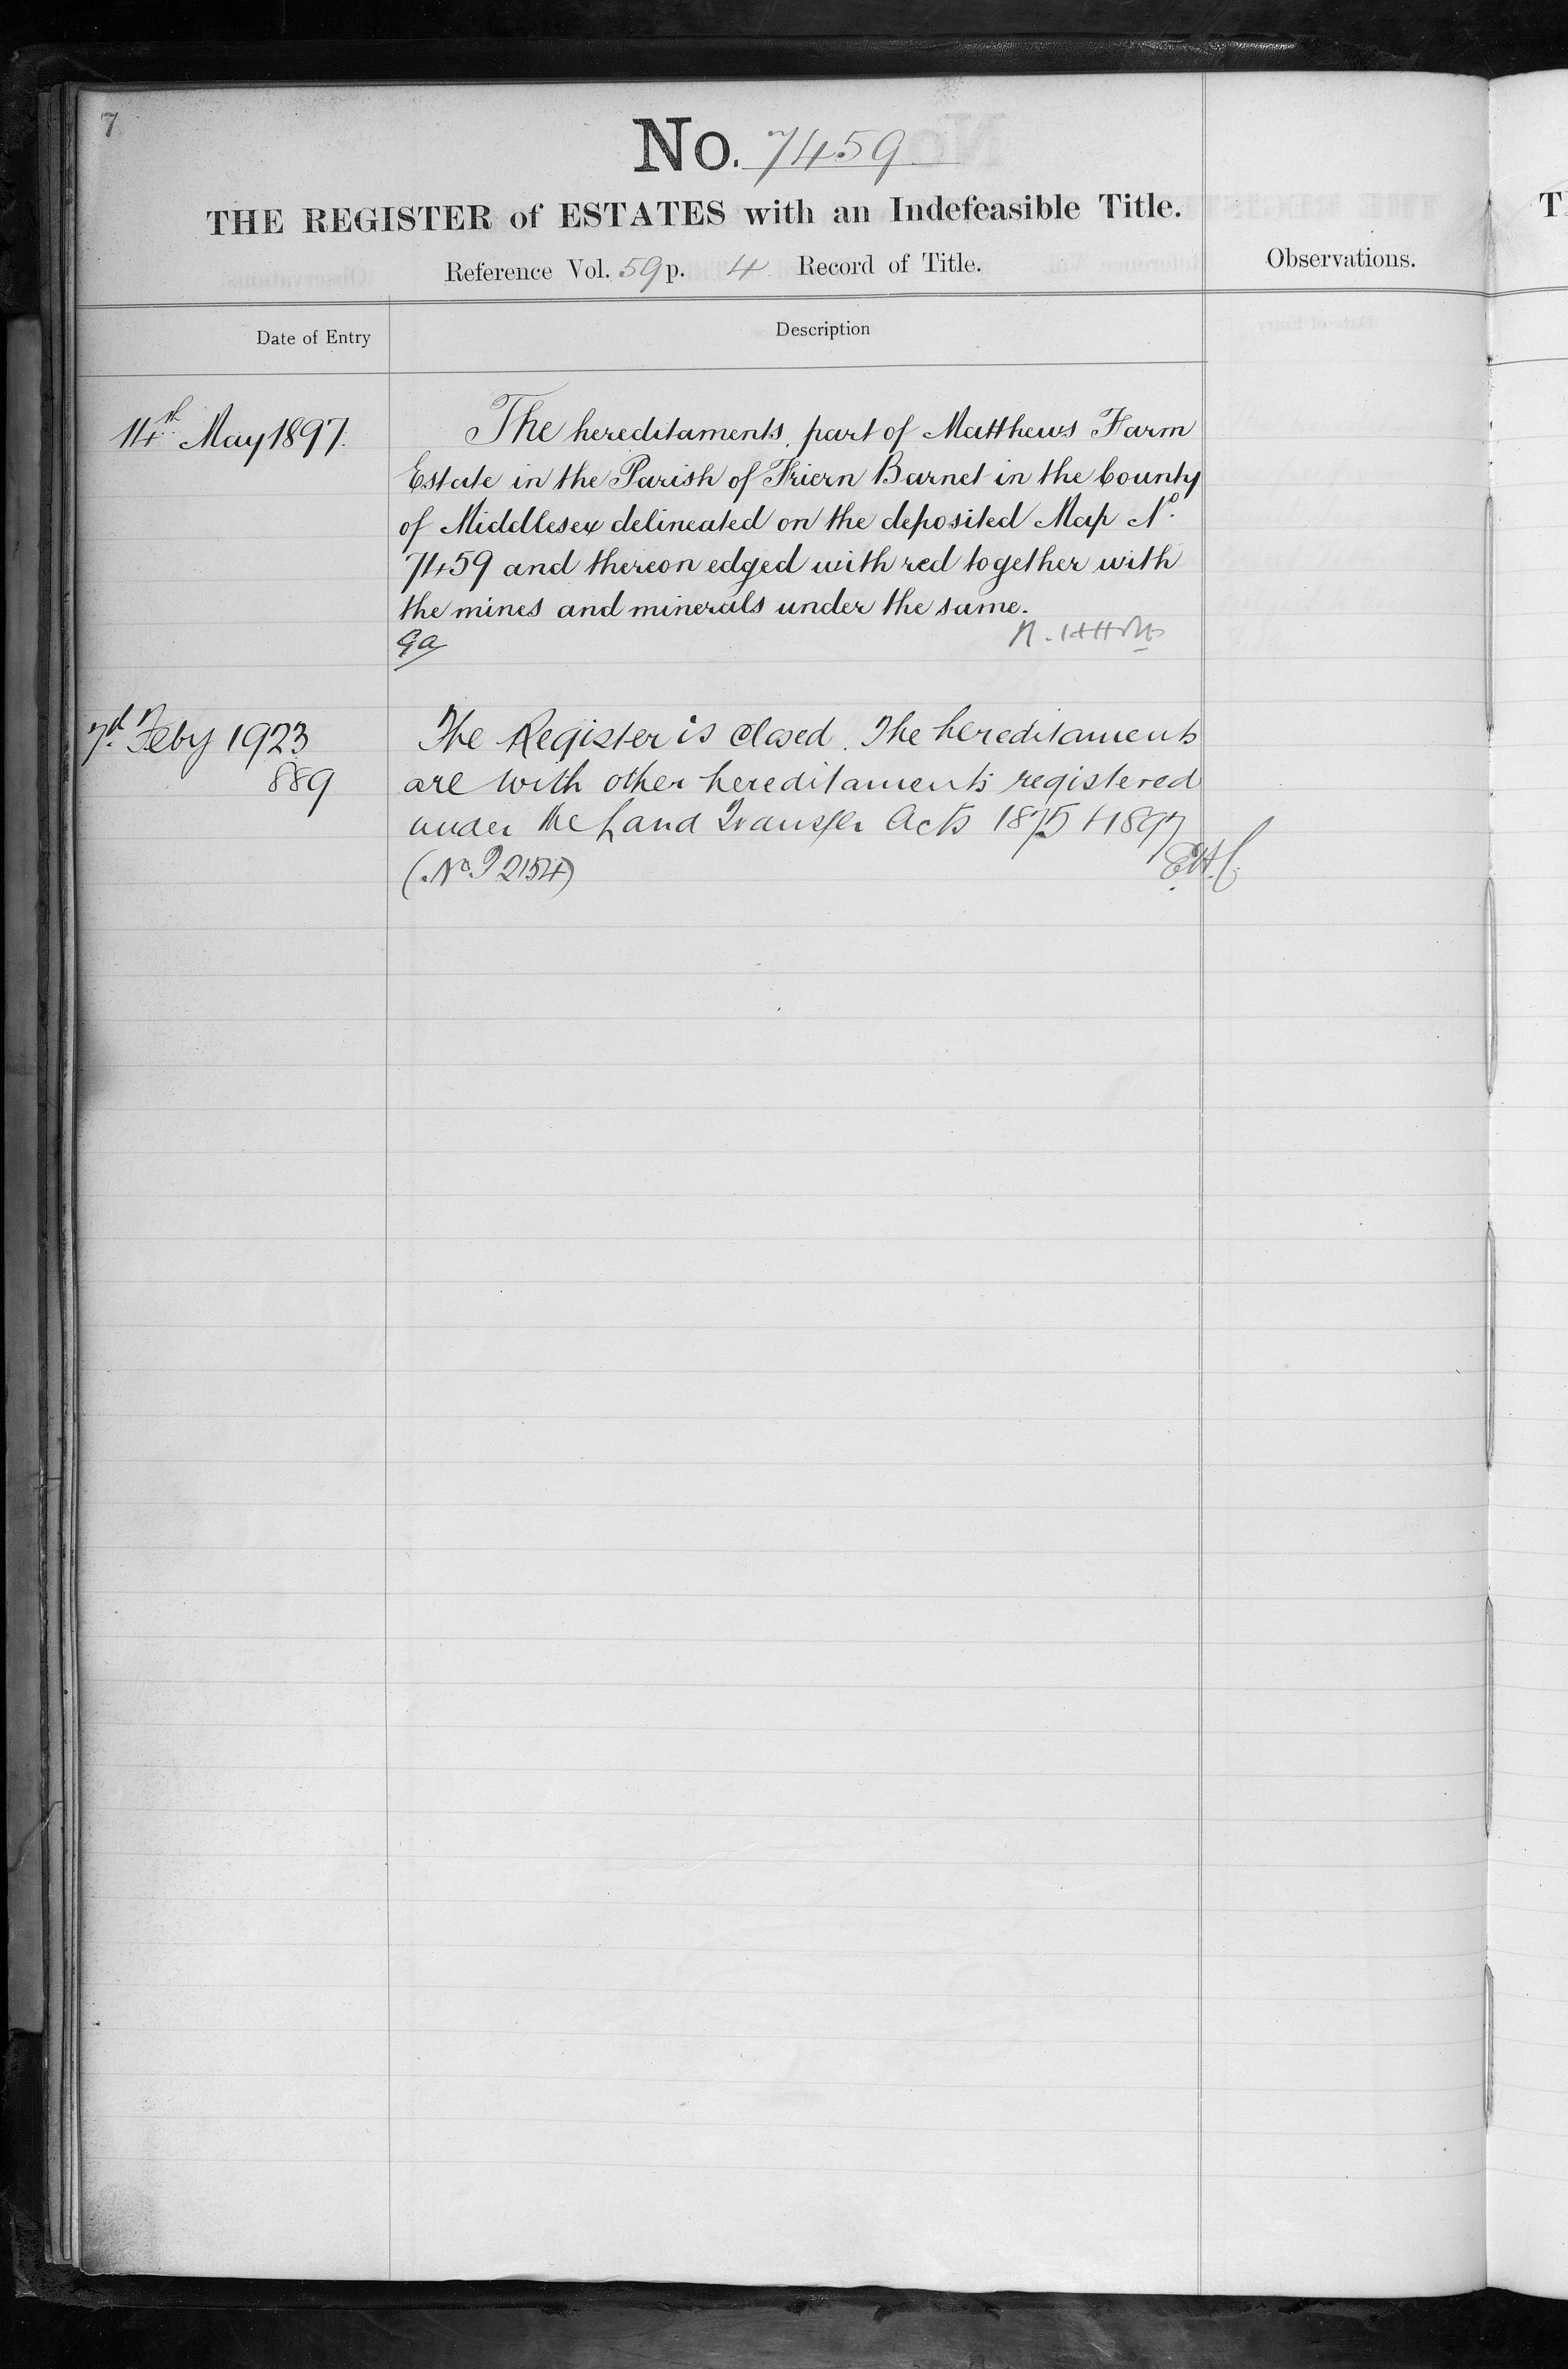 7
No. 7459
THE REGISTER of ESTATES with an Indefeasible Title.
Reference Vol. 59 p. 4 Record of Title.
Observations.
Date of Entry
Description
14th May 1897.
The hereditaments part of Matthews Farm
Estate in the Parish of Friern Barnet in the County
of Middlesex delineated on the deposited Map No.
7459 and thereon edged with red together with
the mines and minerals under the same.
7th Feby 1923
889
The Register is closed. The hereditaments
are with other hereditaments registered
under the Land Transfer Acts 1875 & 1897
(No. P 2154)